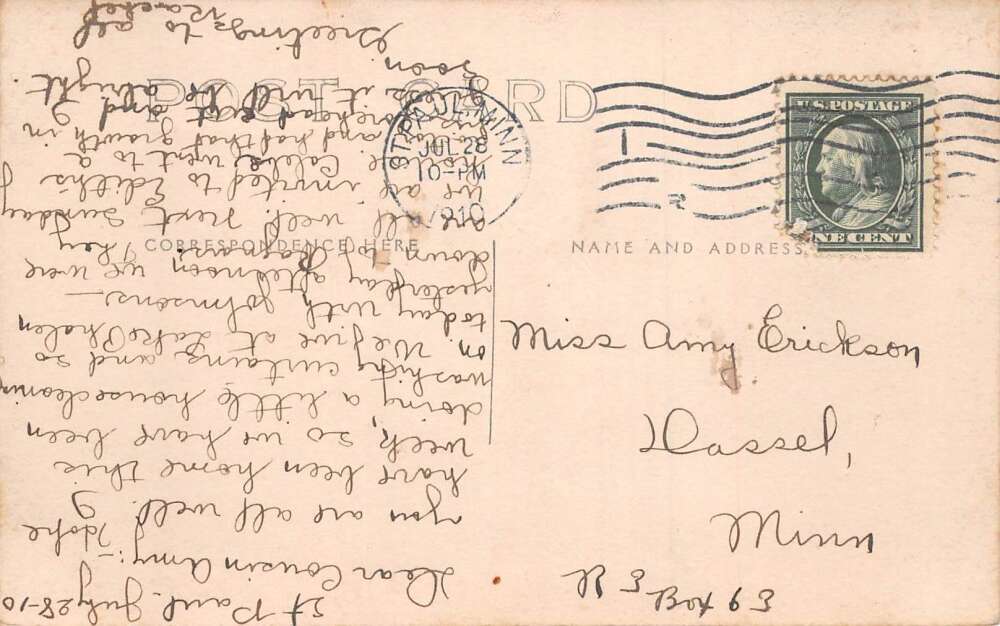 POST CARD
CORRESPONDENCE HERE
NAME AND ADDRESS
U.S. POSTAGE
ONE CENT
ST PAUL, MINN
JUL 28
10-PM
1910
Miss Amy Erickson
Dassel,
Minn
R 3 Box 63
St Paul. July 28-10
Dear Cousin Amy:- I hope
you are all well. I
have been home this
week, so we have been
doing a little housecleaning
washing curtains and so
on. We five at Lake Phalen
today with Johnsons.-
yesterday afternoon we were
down to They
are all well. Next Sunday
we are invited to Edith's
Callie went to a
and had that growth in
forehead cut and I
guess it will be alright
soon.
Greetings to all
Rachel